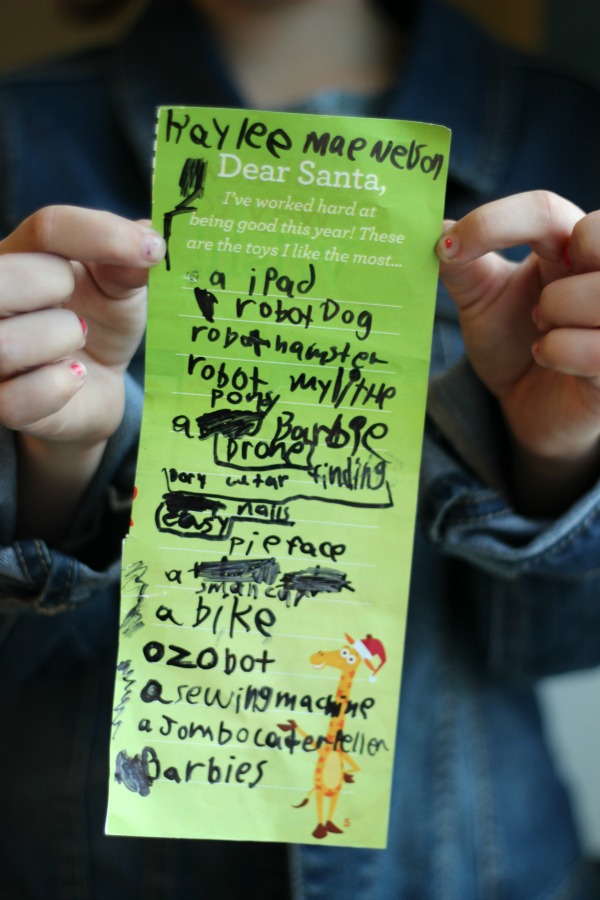 Kaylee mae Nelson
Dear Santa,
I've worked hard at
being good this year! These
are the toys I like the most...
a ipad
robot Dog
robot hamster
robot my little
pony
a Barbie
Drone
finding
Dory
nails
easy
pie face
a
small
a bike
ozobot
a sewing machine
a Jombo
Barbies
5